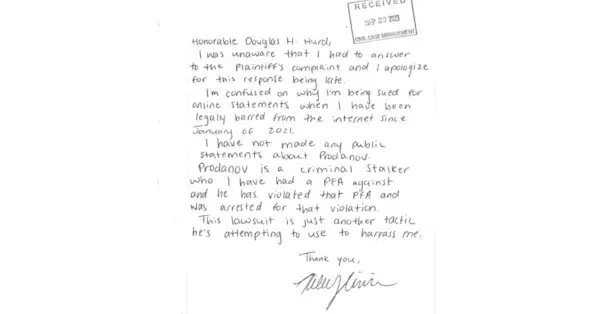 RECEIVED
SEP 23 2021
CIVIL CASE MANAGEMENT
Honorable Douglas H. Hurd,
I was unaware that I had to answer
to the Plaintiff's complaint and I apologize
for this response being late.
I'm confused on why I'm being sued for
online statements when I have been
legally barred from the internet since
January of 2021.
I have not made any public
statements about Prodanov.
Prodanov is a criminal stalker
who I have had a PFA against
and he has violated that PFA and
was arrested for that violation.
This lawsuit is just another tactic
he's attempting to use to harrass me.
Thank you,